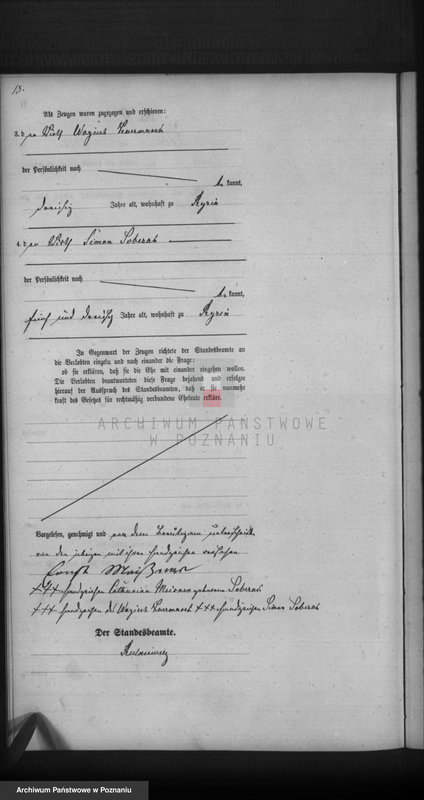 13.
Als Zeugen waren zugezogen und erschienen:
3. der Wirth Wazius
der Persönlichkeit nach
be kannt,
dreißig Jahre alt, wohnhaft zu
4. der Wirth Simon Soberat
der Persönlichkeit nach
be kannt,
fünf und dreißig Jahre alt, wohnhaft zu
In Gegenwart der Zeugen richtete der Standesbeamte an
die Verlobten einzeln und nach einander die Frage:
ob sie erklären, daß sie die Ehe mit einander eingehen wollen.
Die Verlobten beantworteten diese Frage bejahend und erfolgte
hierauf der Ausspruch des Standesbeamten, daß er sie nunmehr
kraft des Gesetzes für rechtmäßig verbundene Eheleute erkläre.
ARCHIWUM PAŃSTWOWE
W POZNANIU
Vorgelesen, genehmigt und von dem Bräutigam unterschrieben
von den übrigen mit ihren Handzeichen versehen
Ernst
+++ Handzeichen Catharina geborene Soberat
+++ Handzeichen des Wazius +++ Handzeichen Simon Soberat
Der Standesbeamte.
Archiwum Państwowe w Poznaniu